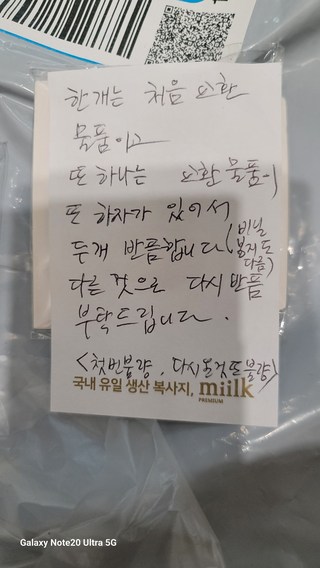 한개는 처음 교환
물품이고
또 하나는 교환물품이
또 하자가 있어서
두개 반품합니다 (비닐
봉지도
다름)
다른 것으로 다시 반품
부탁드립니다.
<첫번불량, 다시온것또불량>
국내 유일 생산 복사지, miilk
PREMIUM
Galaxy Note20 Ultra 5G